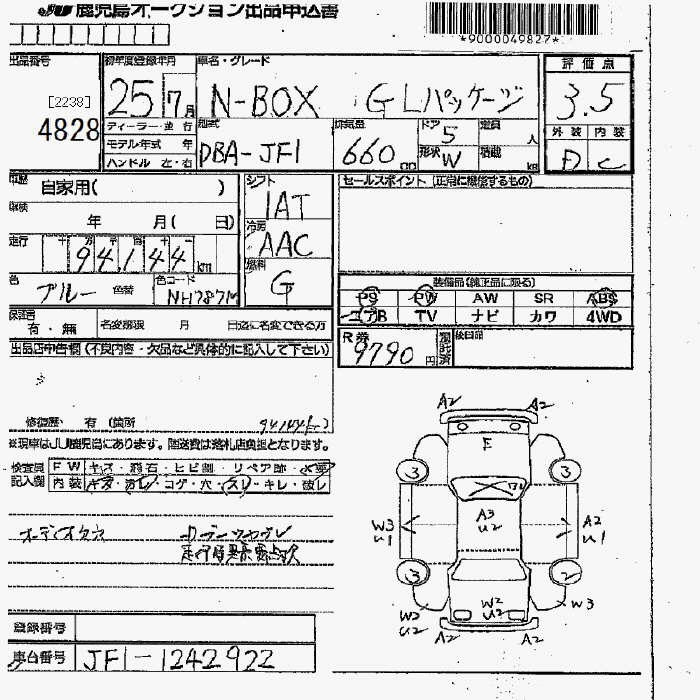 JU 鹿児島オークション出品申込書
*9000049827*
出品番号 初年度登録年月 車名・グレード 評価点
[2238] 25 7月 N-BOX GLパッケージ 3.5
4828 ディーラー・並行 型式 排気量 ドア 5 定員 人 外装 内装
モデル年式 年 DBA-JF1 660 cc 形状 W 積載 kg D C
ハンドル 左・右
車歴 自家用( ) シフト セールスポイント (正常に機能するもの)
車検 年 月( 日) IAT
走行 十 万 千 百 十 一 冷房 AAC
94,144 km 燃料 G
色 ブルー 色替 色コード NH787M 装備品(純正品に限る)
PS PW AW SR ABS
エアB TV ナビ カワ 4WD
保証書 有・無 名変期限 月 日迄に名変できる方
R券 9790円 後日品
出品店申告欄(不良内容・欠品など具体的に記入して下さい)
修復歴・有(箇所 94,144
※現車はJU鹿児島にあります。陸送費は落札店負担となります。
検査員 FW キズ・飛石・ヒビ割・リペア跡・
記入欄 内装 キズ・汚レ・コゲ・穴・スレ・キレ・破レ
オーディオ
A2 A2
F
3 3
A3
U2
W3 A2
U1 U1
3 2
W2 W2 W3
U2 U2
A2 A2
登録番号
車台番号 JF1-1242922